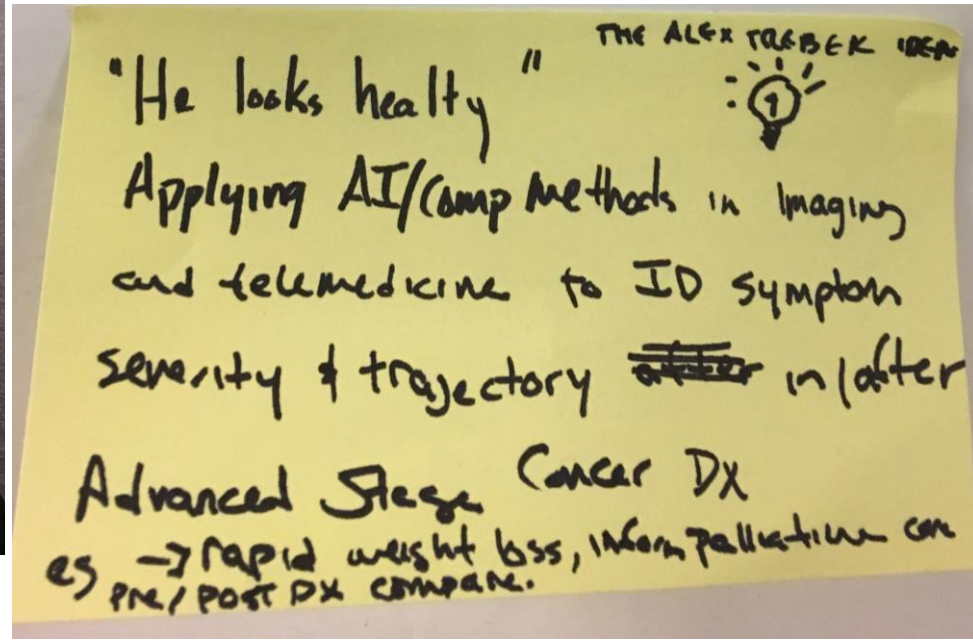 THE ALEX TREBEK IDEA
"He looks healty"
Applying AI/Comp Methods in Imaging
and telemedicine to ID symptom
severity & trajectory in/after
Advanced Stage Cancer DX
eg → rapid weight loss, inform palliative care
pre/post DX compare.